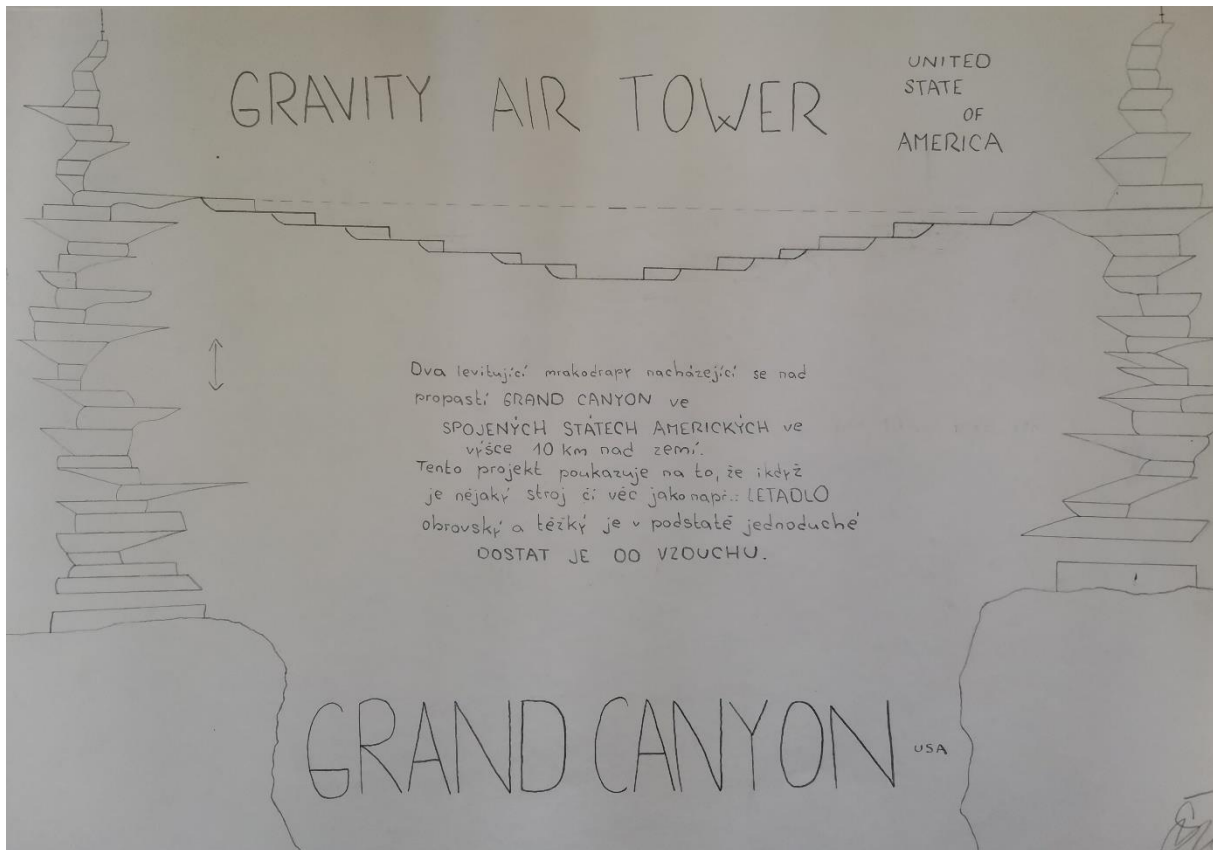 GRAVITY AIR TOWER
UNITED
STATE
OF
AMERICA
Dva levitující mrakodrapy nacházející se nad
propastí GRAND CANYON ve
SPOJENÝCH STÁTECH AMERICKÝCH ve
výšce 10 km nad zemí.
Tento projekt poukazuje na to, že ikdyž
je nějaký stroj či věc jako např.: LETADLO
obrovský a těžký je v podstatě jednoduché
DOSTAT JE DO VZDUCHU.
GRAND CANYON
USA